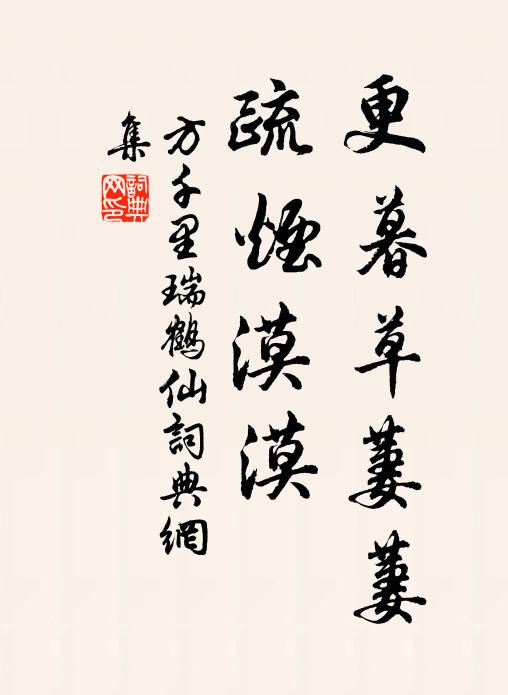 更暮草萋萋
疏煙漠漠
方千里瑞鶴仙詞典網
集
詞典網印